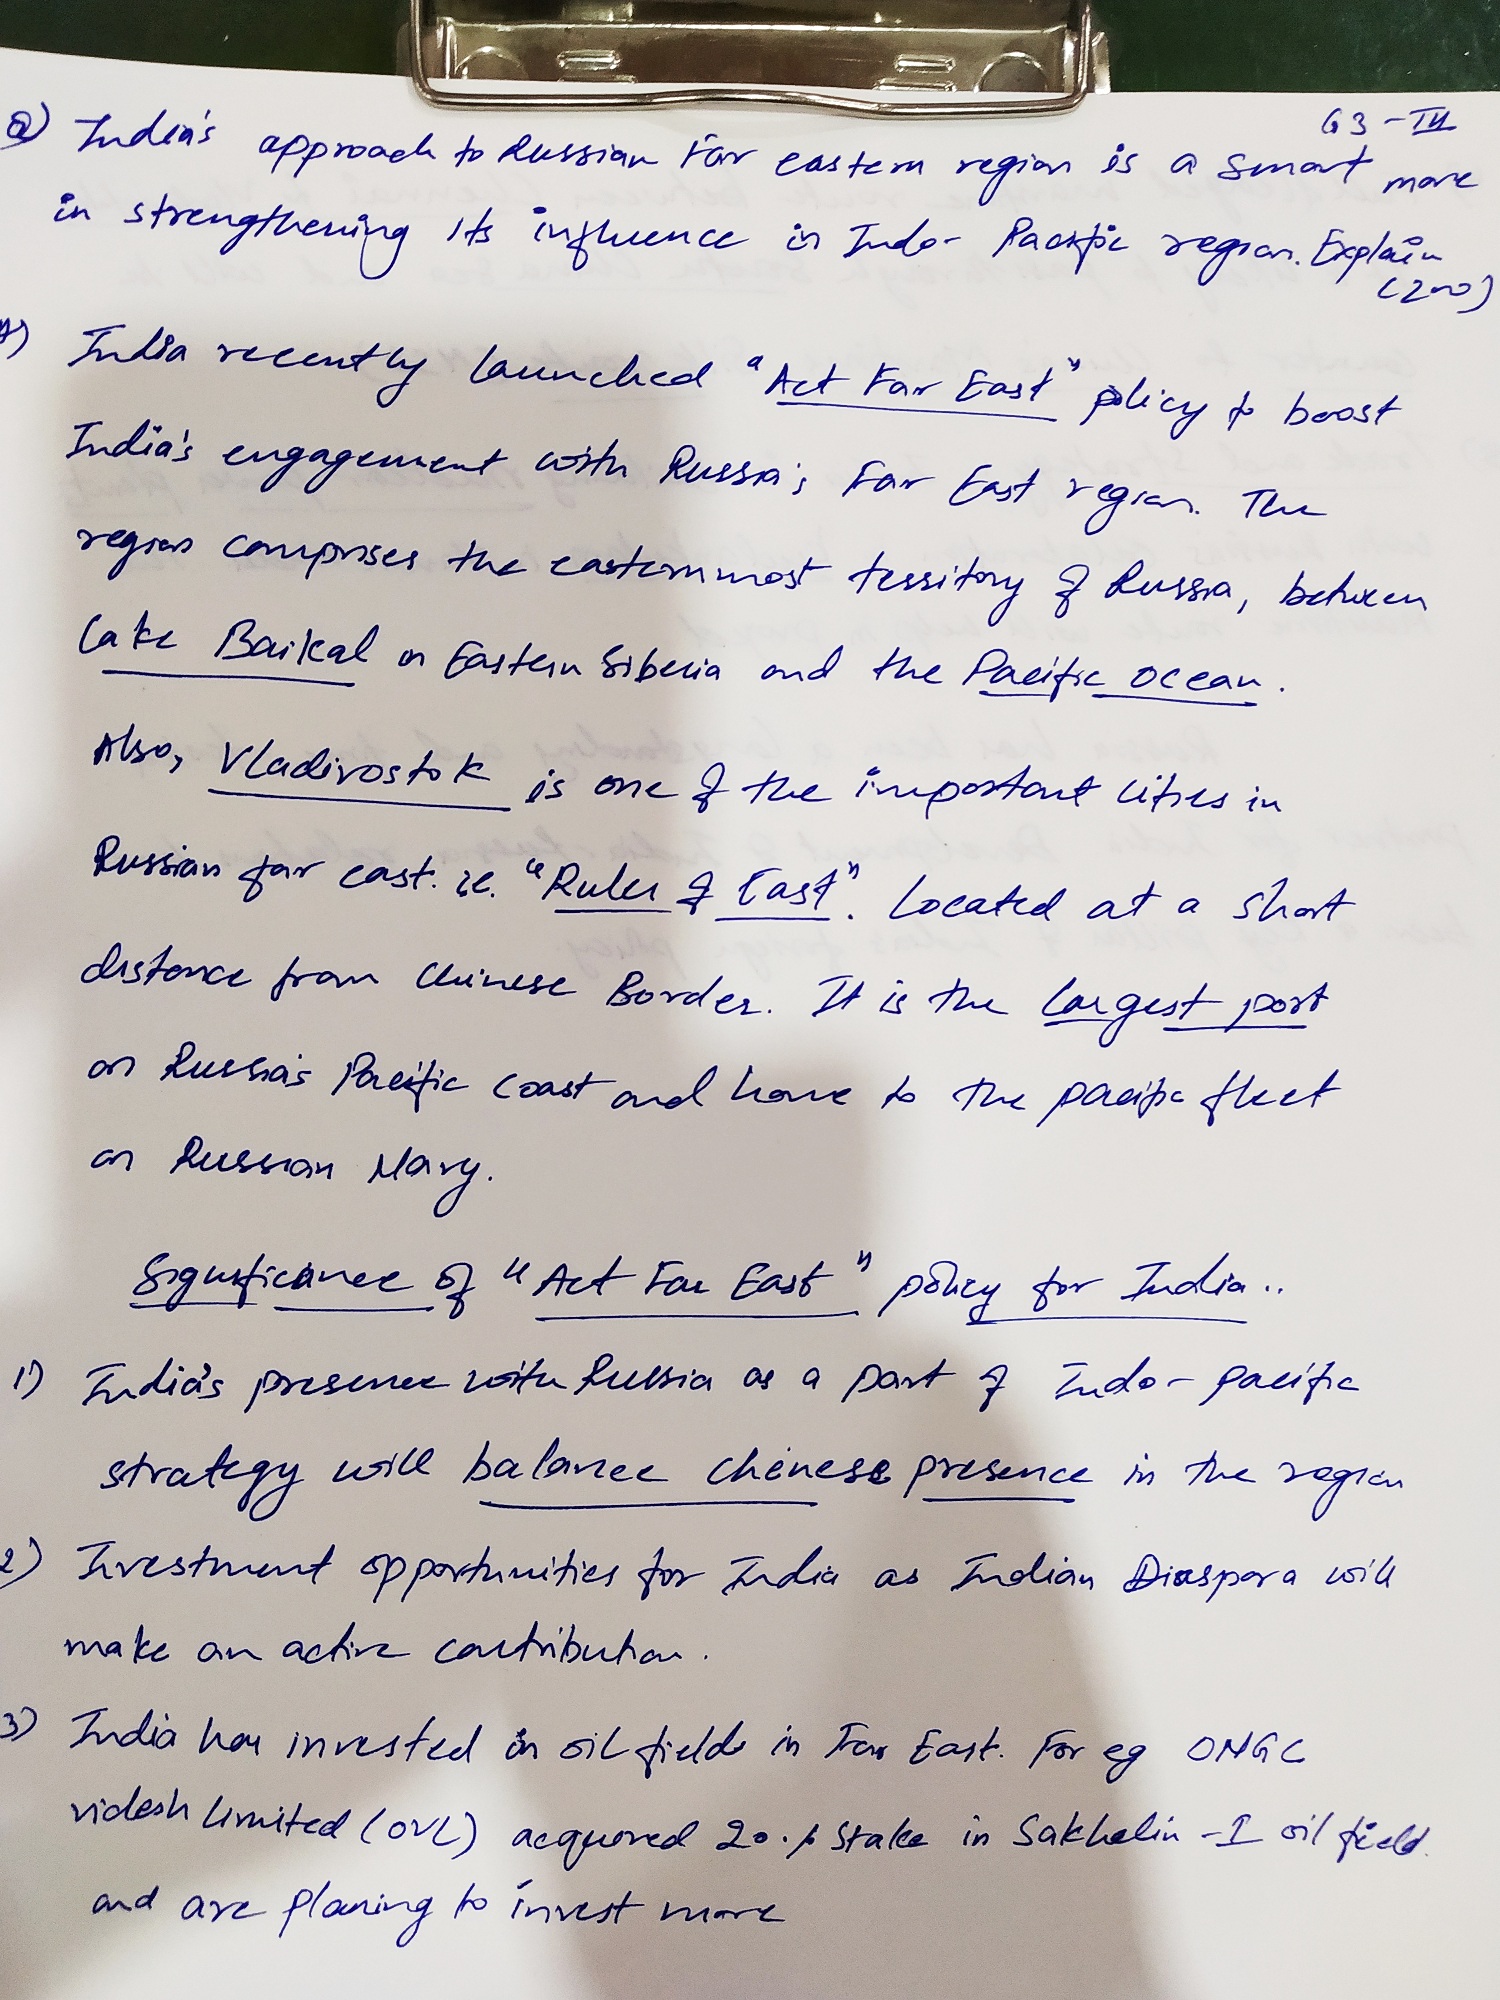 G3 - III
Q) India's approach to Russian Far eastern region is a smart move
in strengthening its influence in Indo- Pacific region. Explain
(200)
A) India recently launched "Act Far East" policy to boost
India's engagement with Russia's Far East region. The
region comprises the easternmost territory of Russia, between
Lake Baikal in Eastern Siberia and the Pacific Ocean.
Also, Vladivostok is one of the important cities in
Russian far east. ie. "Ruler of East". Located at a short
distance from Chinese Border. It is the largest port
on Russia's Pacific Coast and home to the pacific fleet
on Russian Navy.
Significance of "Act Far East" policy for India..
1) India's presence with Russia as a part of Indo- Pacific
strategy will balance chinese presence in the region
2) Investment opportunities for India as Indian Diaspora will
make an active contribution.
3) India has invested in oil fields in Far East. For eg ONGC
videsh limited (OVL) acquored 20% stake in Sakhalin - I oil field.
and are planing to invest more